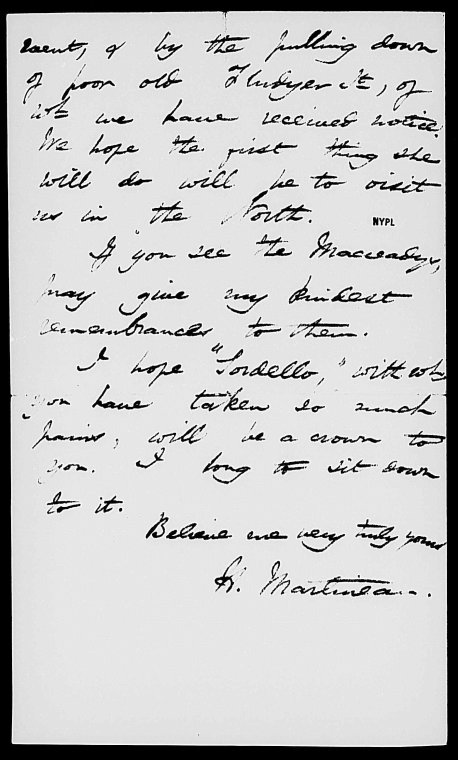 ment, & by the pulling down
of poor old Fludyer St, of
wh we have received notice.
We hope the first thing she
will do will be to visit
us in the North.
NYPL
If you see the Macreadys,
pray give my kindest
remembrances to them.
I hope "Sordello," with wh
you have taken so much
pains, will be a crown to
you. I long to sit down
to it.
Believe me very truly yours
H. Martineau.